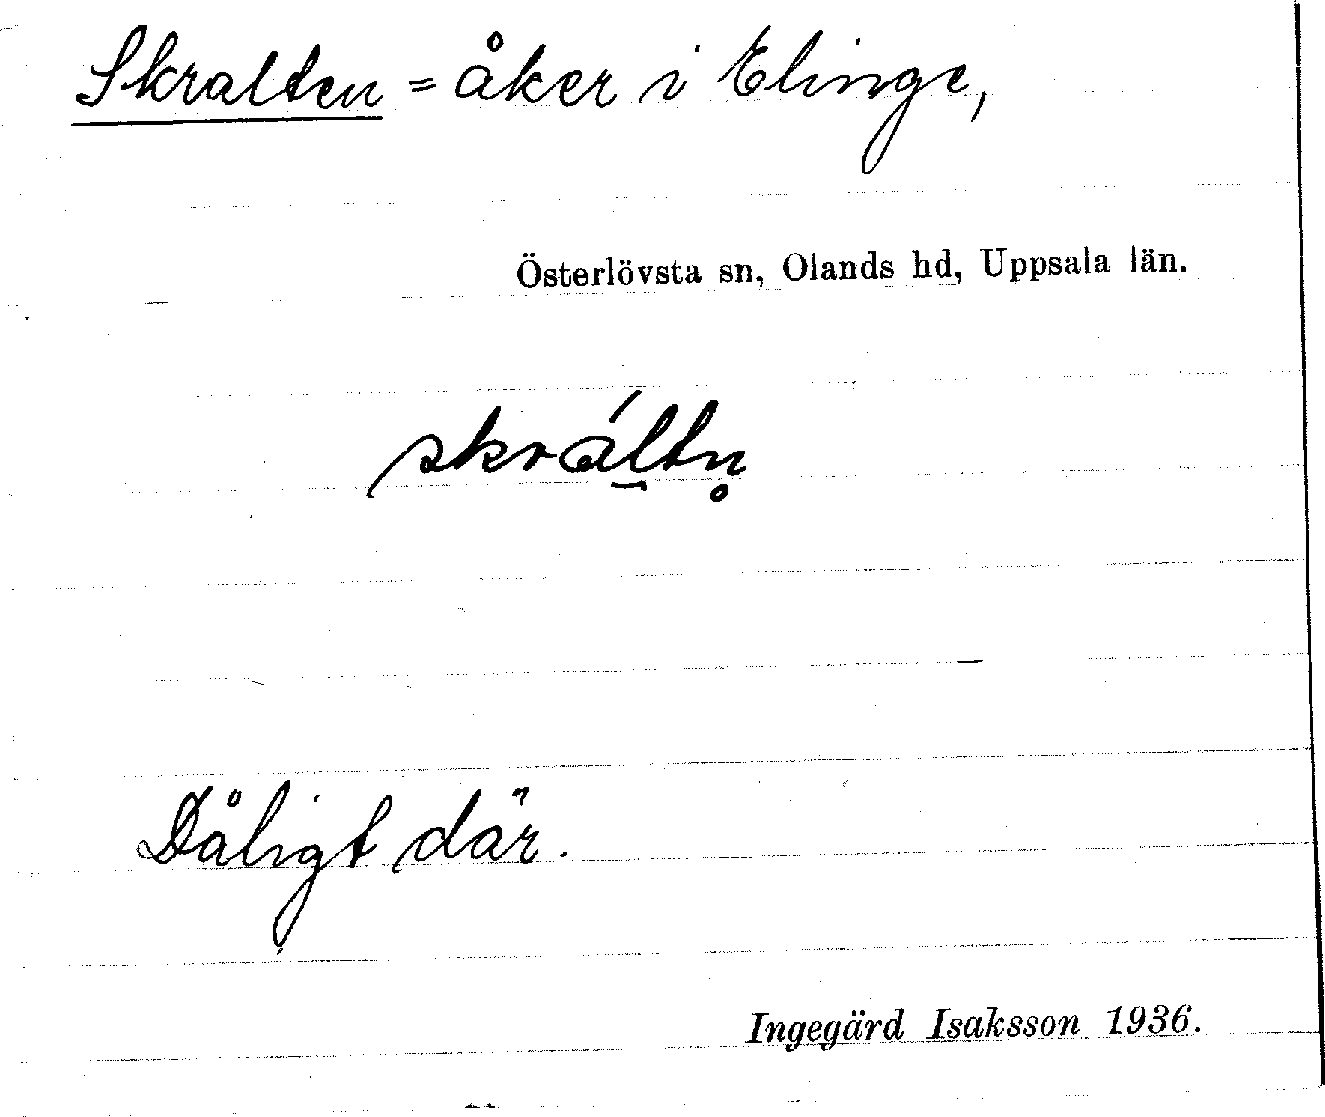 Skralten = åker i Elinge,
Österlövsta sn, Olands hd, Uppsala län.
skrál̠tn̥
Dåligt där.
Ingegärd Isaksson 1936.